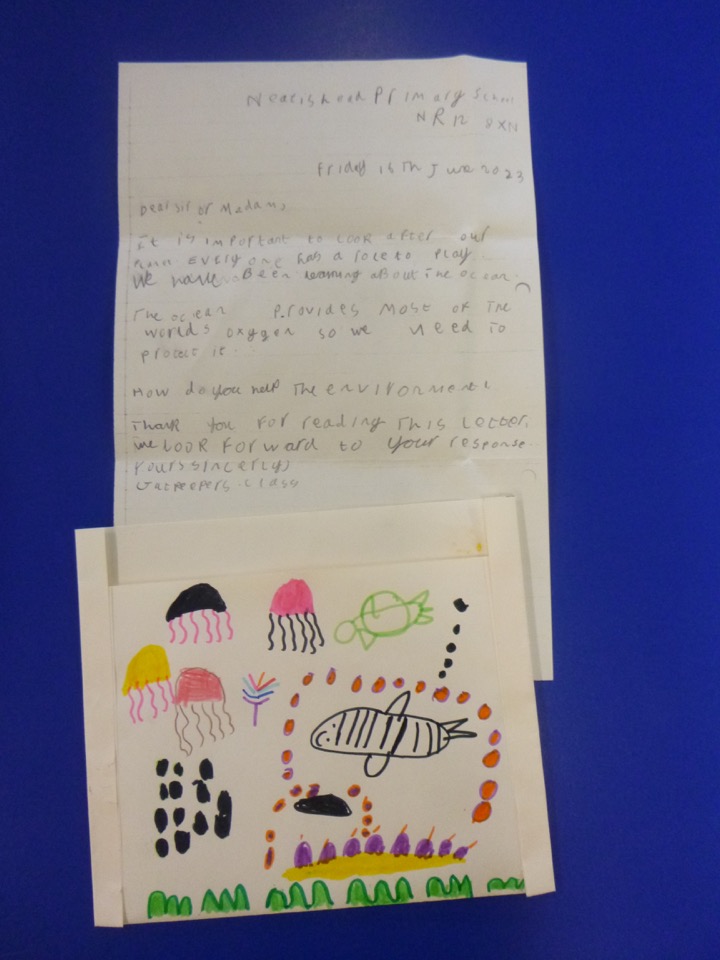 Neatishead Primary School
NR12 8XN
Friday 16Th June 2023
Dear sir or Madam,
It is important to look after our
Everyone has a role to play.
We have Been learning about The ocean.
The ocean Provides most of The
worlds oxygen so we need To
protect it.
How do you help The environment
Thank you For reading This Letter,
we Look Forward to your response.
Yours sincerely
class